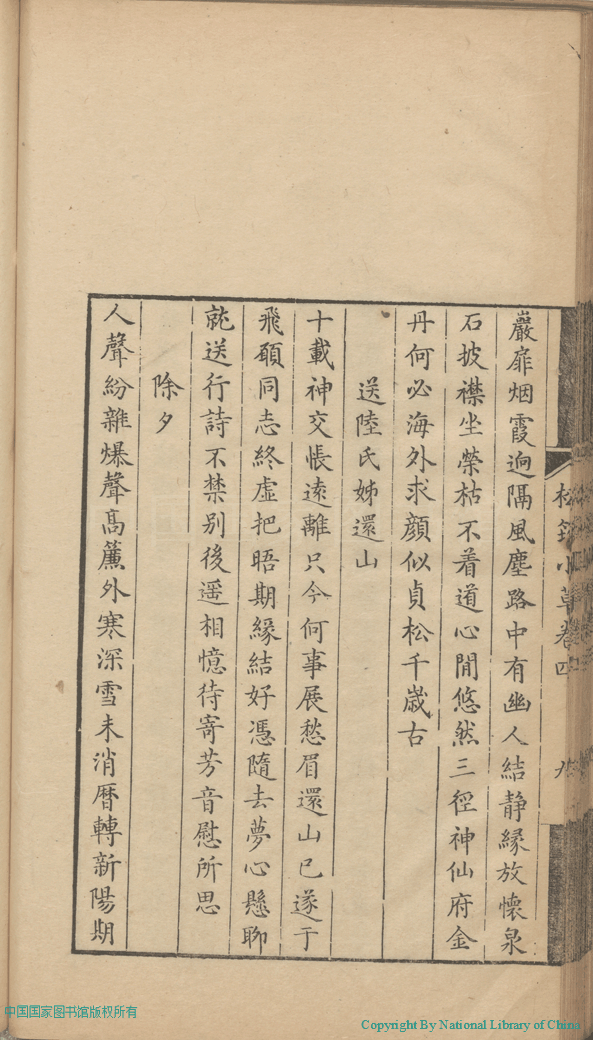 巖扉烟霞逈隔風塵路中有幽人結静緣放懷泉
石披襟坐榮枯不着道心閒悠然三徑神仙府金
丹何必海外求顔似貞松千歲古
送陸氏姊還山
十載神交悵遠離只今何事展愁眉還山已遂于
飛願同志終虛把晤期緣結好憑隨去夢心懸聊
就送行詩不禁别後遥相憶待寄芳音慰所思
除夕
人聲紛雜爆聲高簾外寒深雪未消曆轉新陽期
小草卷四
九
中国国家图书馆版权所有
Copyright By National Library of China